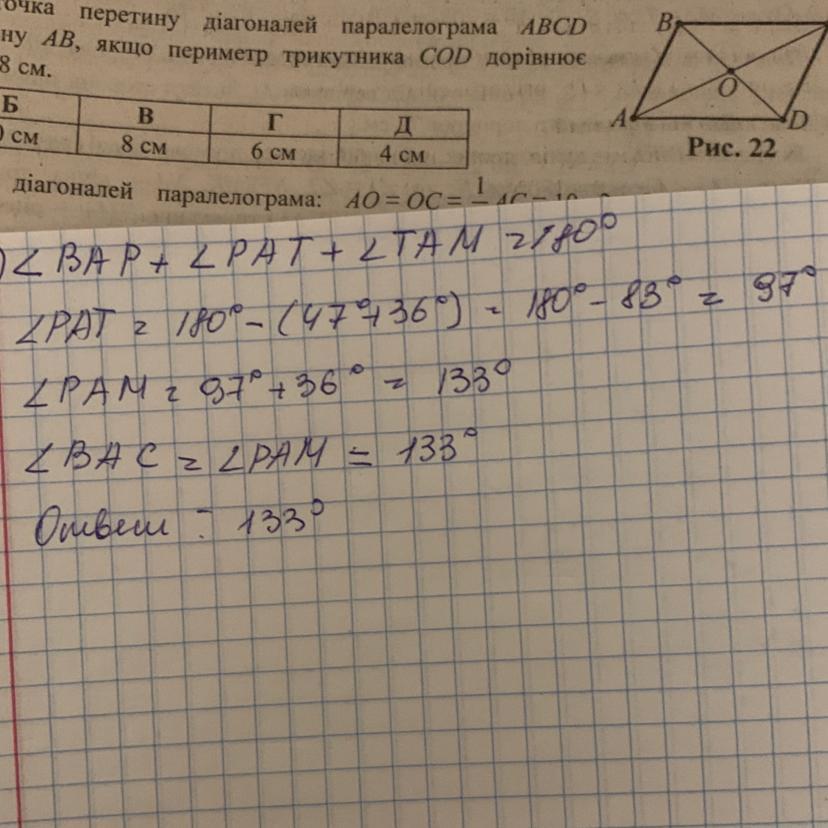 точка перетину діагоналей паралелограма ABCD
ну AB, якщо периметр трикутника COD дорівнює
8 см.
Б В Г Д
0 см 8 см 6 см 4 см
B
O
A
D
Рис. 22
діагоналей паралелограма: AO = OC = 1
) ∠BAP + ∠PAT + ∠TAM = 180°
∠PAT = 180° - (47° + 36°) = 180° - 83° = 97°
∠PAM = 97° + 36° = 133°
∠BAC = ∠PAM = 133°
Ответ : 133°